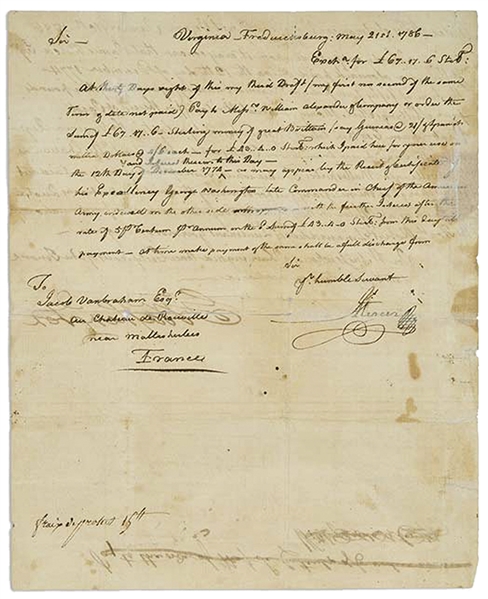 Sir — Virginia Fredericksburg: May 21st. 1786 —
Exch.a for £67.17.6 Ster:
At Thirty Days sight of this my Third Draft (my first nor second of the same
Tenor & date not paid) Pay to Mess.rs William Alexander & Company or order the
Sum of £67.17.6 Sterling money of great Brittain (say Guineas @ 21/ & Spanish
mill'd Dollars @ 4/6 each — for £43.4.0 Ster: which I paid here for your use on
and Interest thereon to this Day —
the 12th Day of 1774 — as may appear by the Receit & Certificate of
his Excellency George Washington late Commander in Chief of the American
Army endorsed on the other side with the further Interest after the
rate of 5 P Centum P Annum on the Sum of £43.4.0 Ster: from this Day till
payment — At time make payment of the same shall be a full discharge from
Sir
Yr. humble Servant
Mercer
To
Jacob Vanbraham Esq.r
au Chateau de
near Malesherbes
France
fraix de protest 15